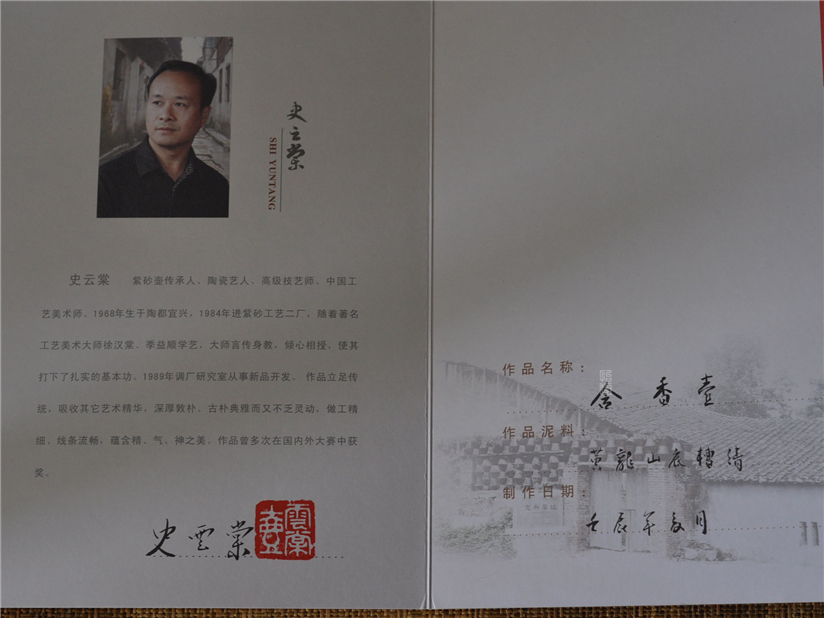 史云棠
SHI YUNTANG
史云棠 紫砂壶传承人、陶瓷艺人、高级技艺师、中国工
艺美术师，1968年生于陶都宜兴，1984年进紫砂工艺二厂，随着著名
工艺美术大师徐汉棠、季益顺学艺，大师言传身教，倾心相授，使其
打下了扎实的基本功。1989年调厂研究室从事新品开发。作品立足传
统，吸收其它艺术精华，深厚敦朴，古朴典雅而又不乏灵动，做工精
细，线条流畅，蕴含精、气、神之美。作品曾多次在国内外大赛中获
奖。
史雲棠
雲棠
作品名称：
含香壶
作品泥料：
黄龍山底槽清
制作日期：
壬辰年夏月